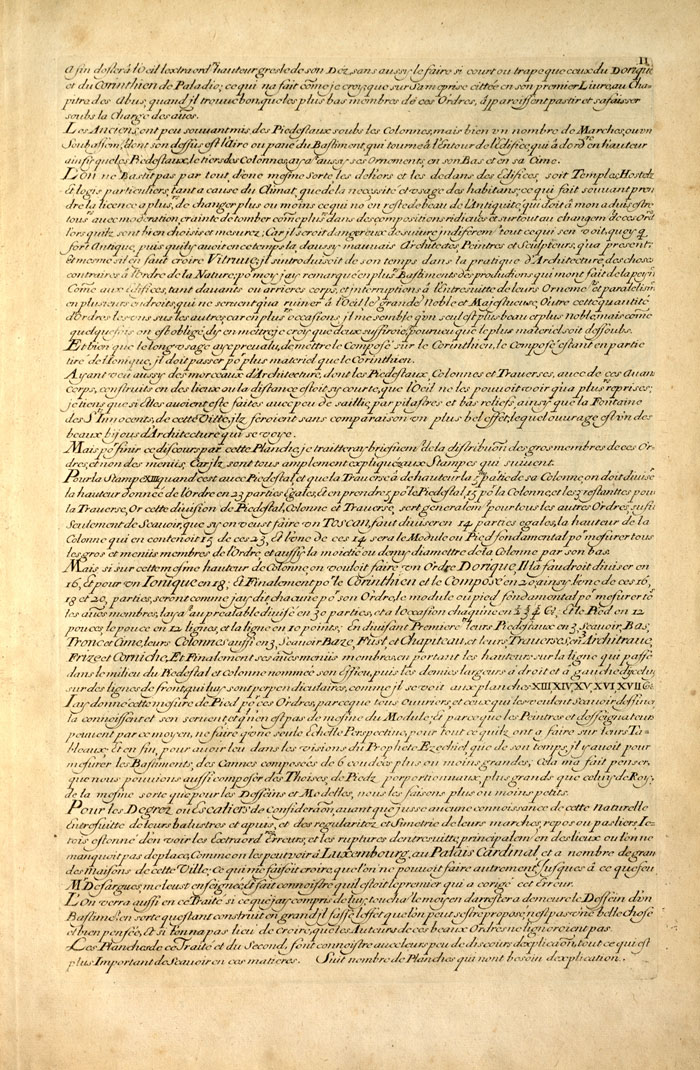 11
Afin d'oster à l'Oeil l'extraord.re hauteur gresle de son Déz, sans aussy le faire si court ou trape que ceux du Dorique
et du Corinthien de Paladio; ce qui na fait côme je croys que sur Sa meprise cittée en son premier Livre, au Cha-
pitre des Abus, quand il trouve bon que les plus bas membres de ces Ordres, apparoissent pastir et s'afaisser
soubs la Charge des aues.
Les Anciens, ont peu souvant mis des Piedestaux soubs les Colonnes, mais bien un nombre de Marches, ou un
Soubassem.t, dont son dessus est l'Aire ou pané du Bastiment, qui tourne à l'Entour de l'Edifice, qui a d'ord.re en hauteur
ainsi que les Piedestaux, le tiers des Colonnes, ayant aussy ses Ornements, en son Bas et en sa Cime.
L'on ne Bastit pas par tout, d'une mesme sorte les dehors et les dedans des Edifices, soit Temples, Hostelz
& logis particuliers, tant a cause du Climat, que de la necessité et usage des habitans; ce qui fait souvant pren
dre la licence a plus.rs, de changer plus ou moins ce qui no en reste de beau de l'Antiquité, qui doit à mon advis estre
tous.rs avec moderation, crainte de tomber côme plus.rs dans des compositions ridicules, et surtout au changem.t de ces Ord.
lors quilz sont bien choisis et mesurez; Car il seroit dangereux de suivre indiferem.t tout ce qui s'en voit, quoy q
fort Antique, puis quily avoit en ce temps là, d'aussy mauvais Architectes, Peintres et Sculpteurs, qu'a present;
et mesme s'il en faut croire Vitruve, il s'introduisoit de son temps dans la pratique d'Architecture, des choses
contraires à l'Ordre de la Nature; po.r moy jay remarqué en plus.rs Bastiments des produtions qui mont fait de la peyne
Côme aux Edifices, tant davants ou arrieres corps, et interruptions à l'Entresuitte de leurs Ornem.ts et paralelism
en plusieurs endroits, qui ne servent qu'a ruiner à l'Oeil le grand, Noble et Majestueux; Outre cette quantité
d'Ordres les uns sus les autres; car en plus.rs occasions il me semble qu'un seul est plus beau et plus noble, mais côme
quelquefois on est obligé, d'y en mettre, je croy que deux suffisoie.t, pourveu que le plus materiel soit dessoubs.
Et bien que le long usage aye prevalu, de mettre le Composé sur le Corinthien, le Composé estant en partie
tiré de l'Ionique, il doit passer po.r plus materiel que le Corinthien.
Ayant veu aussy des morceaux d'Architecture, dont les Piedestaux, Colonnes et Traverses, avec de ces Avant
corps, construits en des lieux ou la distance estoit sy courte, que l'Oeil ne les pouvoit voir qu'a plus.rs reprises;
je tiens que si Elles avoient esté faites avec peu de saillie, par pilastres et bas reliefs, ainsy que la Fontaine
des S.ts Innocents, de cette Ville, ilz feroient sans comparaison un plus bel effet, lequel ouvrage est un des
beaux bijeus d'Architecture qui se voye.
Mais po.r finir ce discours par cette Planche, je traitteray briefvem.t de la distribu.on des gros membres de ces Or-
dres, et non des menus, Car ilz sont tous amplement expliquez aux Stampes qui suivent.
Pour la Stampe XIII quand c'est avec Piedestal et que la Traverse à de hauteur la 5.e partie de sa Colonne, on doit divise
la hauteur donnée de l'ordre en 23 parties Egales, & en prendre 5 po.r le Piedestal, 15 po.r la Colonne, et les 3 restantes pour
la Traverse, Or cette division de Piedestal, Colonne et Traverse, sert generalem.t pour tous les autres Ordres; suffit
Seulement de Scavoir, que sy on veust faire un Toscan, faut diviser en 14 parties egales, la hauteur de la
Colonne qui en contenoit 15 de ces 23, & l'une de ces 14 sera le Module ou Pied fondamental po.r mesurer tous
les gros et menus membres de l'Ordre, et aussy la moictié ou demy diamettre de la Colonne par son bas.
Mais si sur cette mesme hauteur de Colone, on vouloit faire un Ordre Dorique, Il la faudroit diviser en
16, Et pour un Ionique en 18; Et Finalement po.r le Corinthien et le Composé en 20 ainsy l'une de ces 16,
18 et 20, parties, seront comme jay dit chacune po.r son Ordre, le module ou pied fondamental po.r mesurer to.s
les aues membres, laya.t au prealable divisé en 30 parties, et a l'ocasion chaqune en ½ ¼ &c, & le Pied en 12
pouces, le pouce en 12 lignes, et la ligne en 10 points; En divisant Premiere.t leurs Piedestaux en 3 Scavoir, Bas,
Tronc et Cime, leurs Colonnes aussi en 3, Scavoir Baze, Fust et Chapiteau, et leurs Traverses, en Architrave,
Frize et Corniche, Et Finalement ses aues menus membres, en portant les hauteurs sur la ligne qui passe
dans le milieu du Piedestal et colonne nommée son Essieu, puis les demies largeurs à droit et à gauche dicelui
sur des lignes de front, qui luy sont perpendiculaires, comme il se voit aux planches XIII, XIV, XV, XVI, XVII &c
Jay donné cette mesure de Pied po.r ces Ordres, parce que tous Ouvriers, et ceux qui les veulent Scavoir dessine
la connoissent et son servent, et q'n'en est pas de mesme du Module; & parce que les Peintres et desseignateurs
peuvent par ce moyen, ne faire q'une seule Echelle Perspective, pour tout ce quilz ont a faire sur leurs Ta-
bleaux; Et en fin, pour avoir leu dans les visions du Prophete Ezechiel que de son temps, il y avoit pour
mesurer les Bastiments, des Cannes composées de 6 coudées plus ou moins grandes; Cela ma fait penser,
que nous pouvions aussi composer des Thoises, de Piedz porportionnaux, plus grands que celuy de Roy,
de la mesme sorte que pour les Desseins et Modelles, nous les faisons plus ou moins petits.
Pour les Degrez ou Escaliers de Considera.on, avant que jusse aucune connoissance de cette naturelle
Entresuitte de leurs balustres et apuis, et des regularitez et Simetrie de leurs marches, repos ou pasliers Ie-
tois estonné d'en voir les Extraord.res Erreurs, et les ruptures d'entresuitte, principalem.t en des lieux ou l'on ne
manquoit pas de place, Comme on les peut voir à Luxembourg, au Palais Cardinal et a nombre de gran
des maisons de cette Ville; ce qui me faisoit croire, que l'on ne pouvoit faire autrement, Iusques à ce que feu
M.r Desargues, me leust enseigné; & fait connoistre quil estoit le premier qui a corigé cet Erreur.
L'On verra aussi en ce Traité si ce que jay compris de luy, toucha.t le moyen darrester a demeure le Dessein d'un
Bastim.t, en sorte qu'estant construit en grand, il fasse l'effet que l'on peut sestre proposé, n'est pas une belle chose
et bien pensée, & si l'on na pas lieu de croire, que les Auteurs de ces beaux Ordres ne lignoroient pas.
Les Planches de ce Traité et du Second, font connoistre avec leurs peu de discours d'explica.on, tout ce qui est
plus Important de Scavoir en ces matieres. Suit nombre de Planches qui n'ont besoin d'explication.